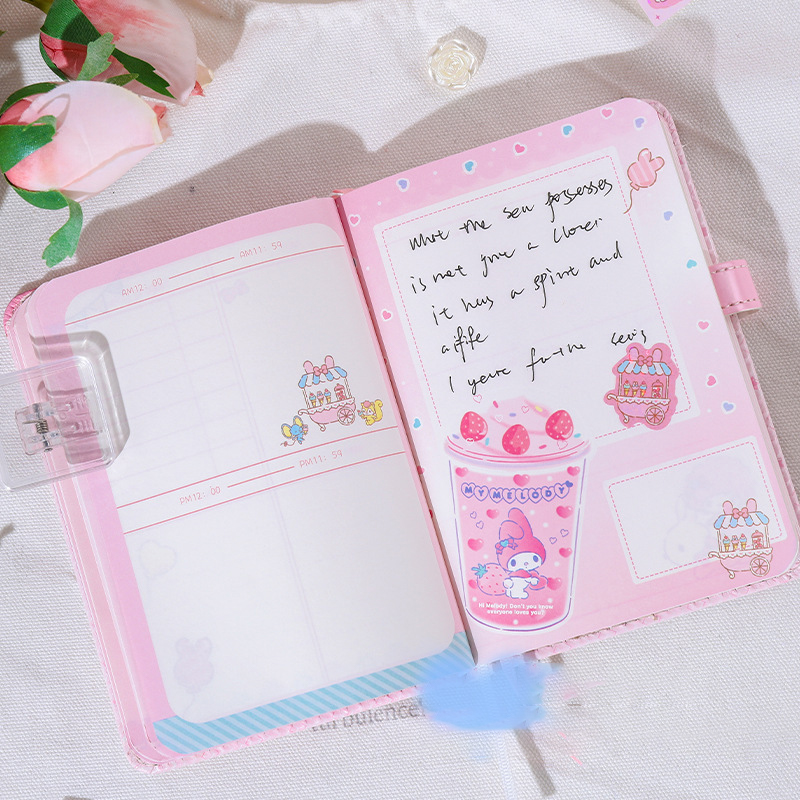 AM12: 00
AM11: 59
PM12: 00
PM11: 59
what the sea possesses
is not give a lover
it has a spirit and
a life
I yearn for the
MY MELODY
Hi Melody! Don't you know
everyone loves you?